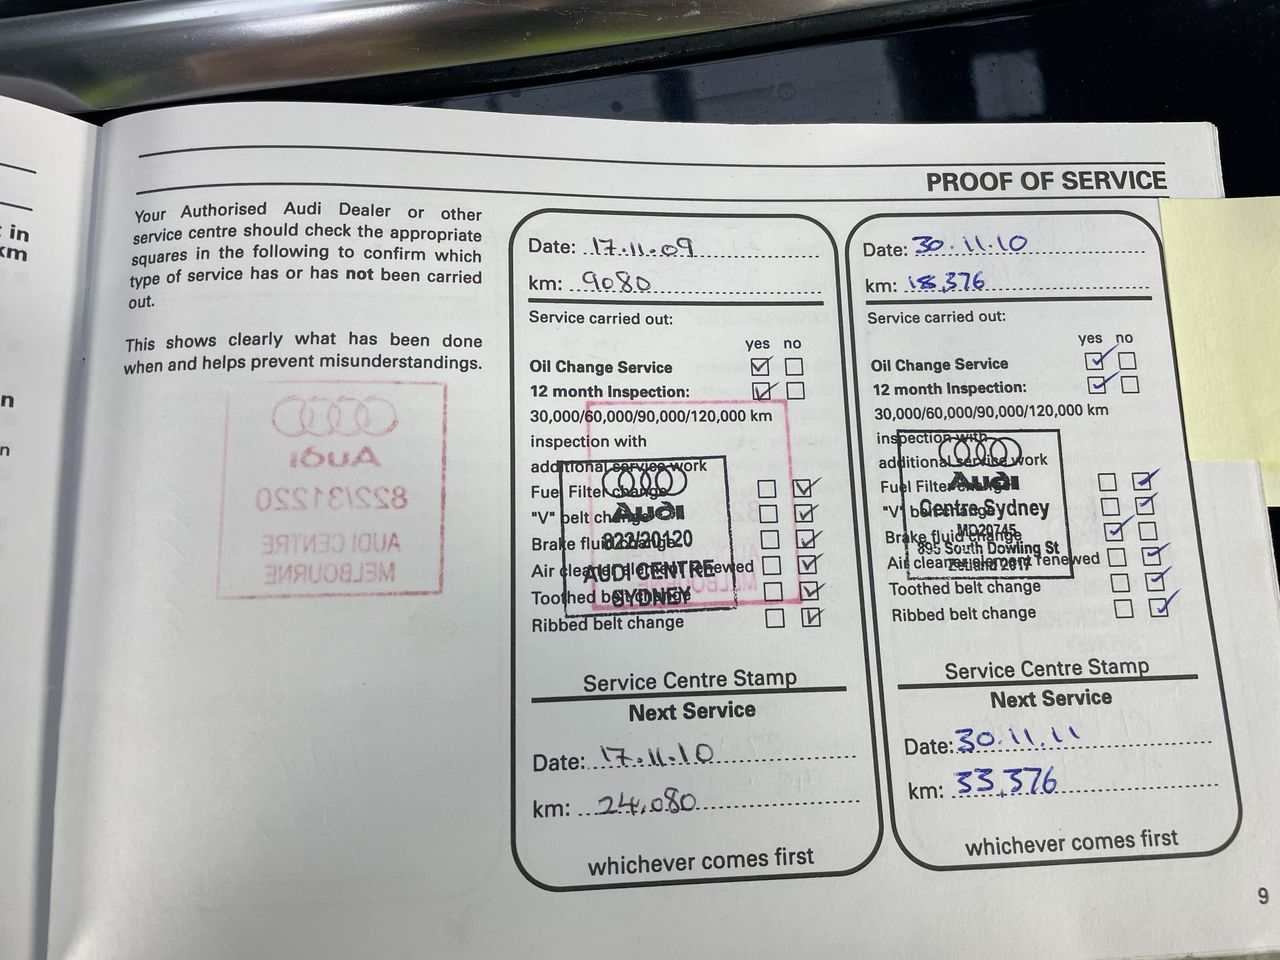 in
km
n
n
PROOF OF SERVICE
Your Authorised Audi Dealer or other
service centre should check the appropriate
squares in the following to confirm which
type of service has or has not been carried
out.
This shows clearly what has been done
when and helps prevent misunderstandings.
Audi
822/31220
AUDI CENTRE
MELBOURNE
Date: 17.11.09
km: 9080
Service carried out:
yes no
Oil Change Service
12 month Inspection:
30,000/60,000/90,000/120,000 km
inspection with
additional service work
Fuel Filter change
"V" belt change
Brake fluid change
Air cleaner element renewed
Toothed belt change
Ribbed belt change
Audi
822/20120
AUDI CENTRE
SYDNEY
Service Centre Stamp
Next Service
Date: 17.11.10
km: 24,080
whichever comes first
Date: 30.11.10
km: 18,376
Service carried out:
yes no
Oil Change Service
12 month Inspection:
30,000/60,000/90,000/120,000 km
inspection with
additional service work
Fuel Filter change
"V" belt change
Brake fluid change
Air cleaner element renewed
Toothed belt change
Ribbed belt change
Audi
Centre Sydney
MD20745
895 South Dowling St
Zetland 2017
Service Centre Stamp
Next Service
Date: 30.11.11
km: 33,376
whichever comes first
9